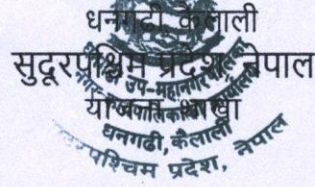 धनगढी, कैलाली
सुदूरपश्चिम प्रदेश, नेपाल
योजना शाखा
उप-महानगर
नगरपालिकाको
धनगढी, कैलाली
सुदूरपश्चिम प्रदेश, नेपाल